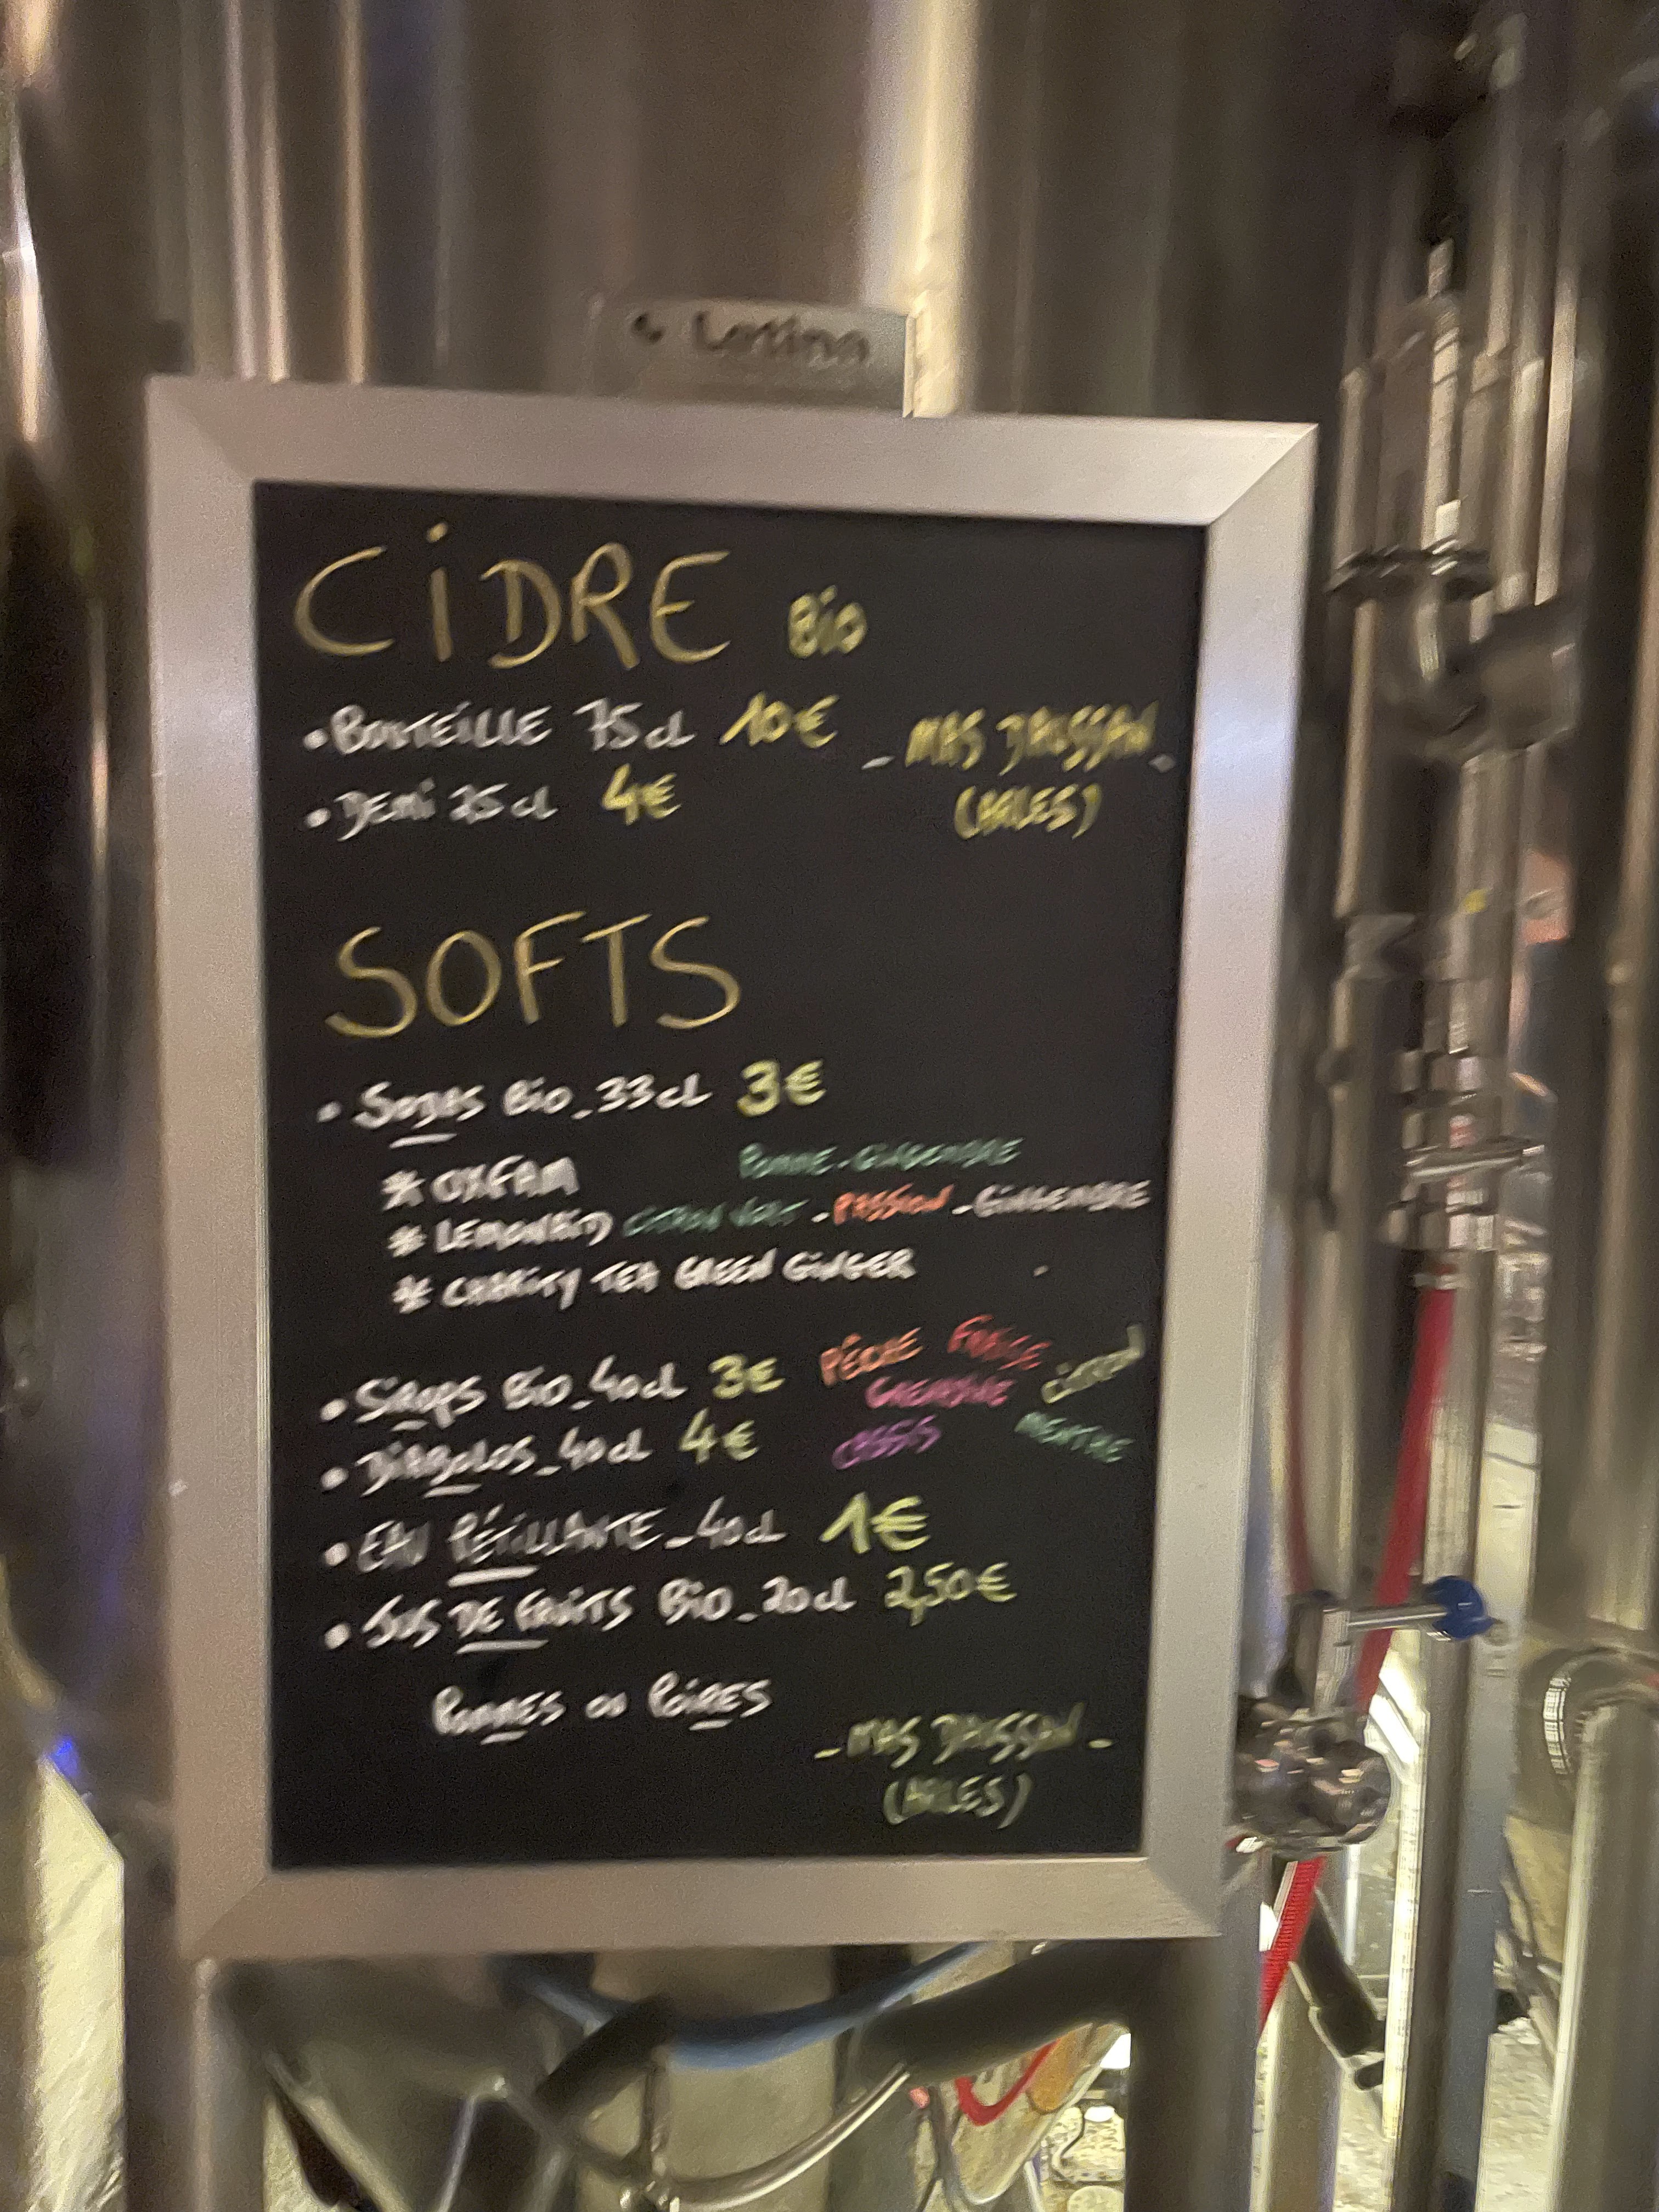 CiDRE Bio
• BOUTEiLLE 75cl 10€ - MAS DAUSSAN -
• DEMi 25cl 4€ (ARLES)
SOFTS
• SODAS Bio_33cl 3€
* OXFAM POMME-GiNGEMBRE
* LEMONAiD CiTRON VERT - PASSiON - GiNGEMBRE
* CHARiTY TEA GREEN GiNGER
• SiROPS Bio_40cl 3€ PÊCHE FRAiSE CiTRON
GRENADiNE
• DiABOLOS_40cl 4€ CASSiS MENTHE
• EAU PÉTiLLANTE_40cl 1€
• JUS DE FRUiTS Bio_20cl 2,50€
POMMES OU POiRES
- MAS DAUSSAN -
(ARLES)